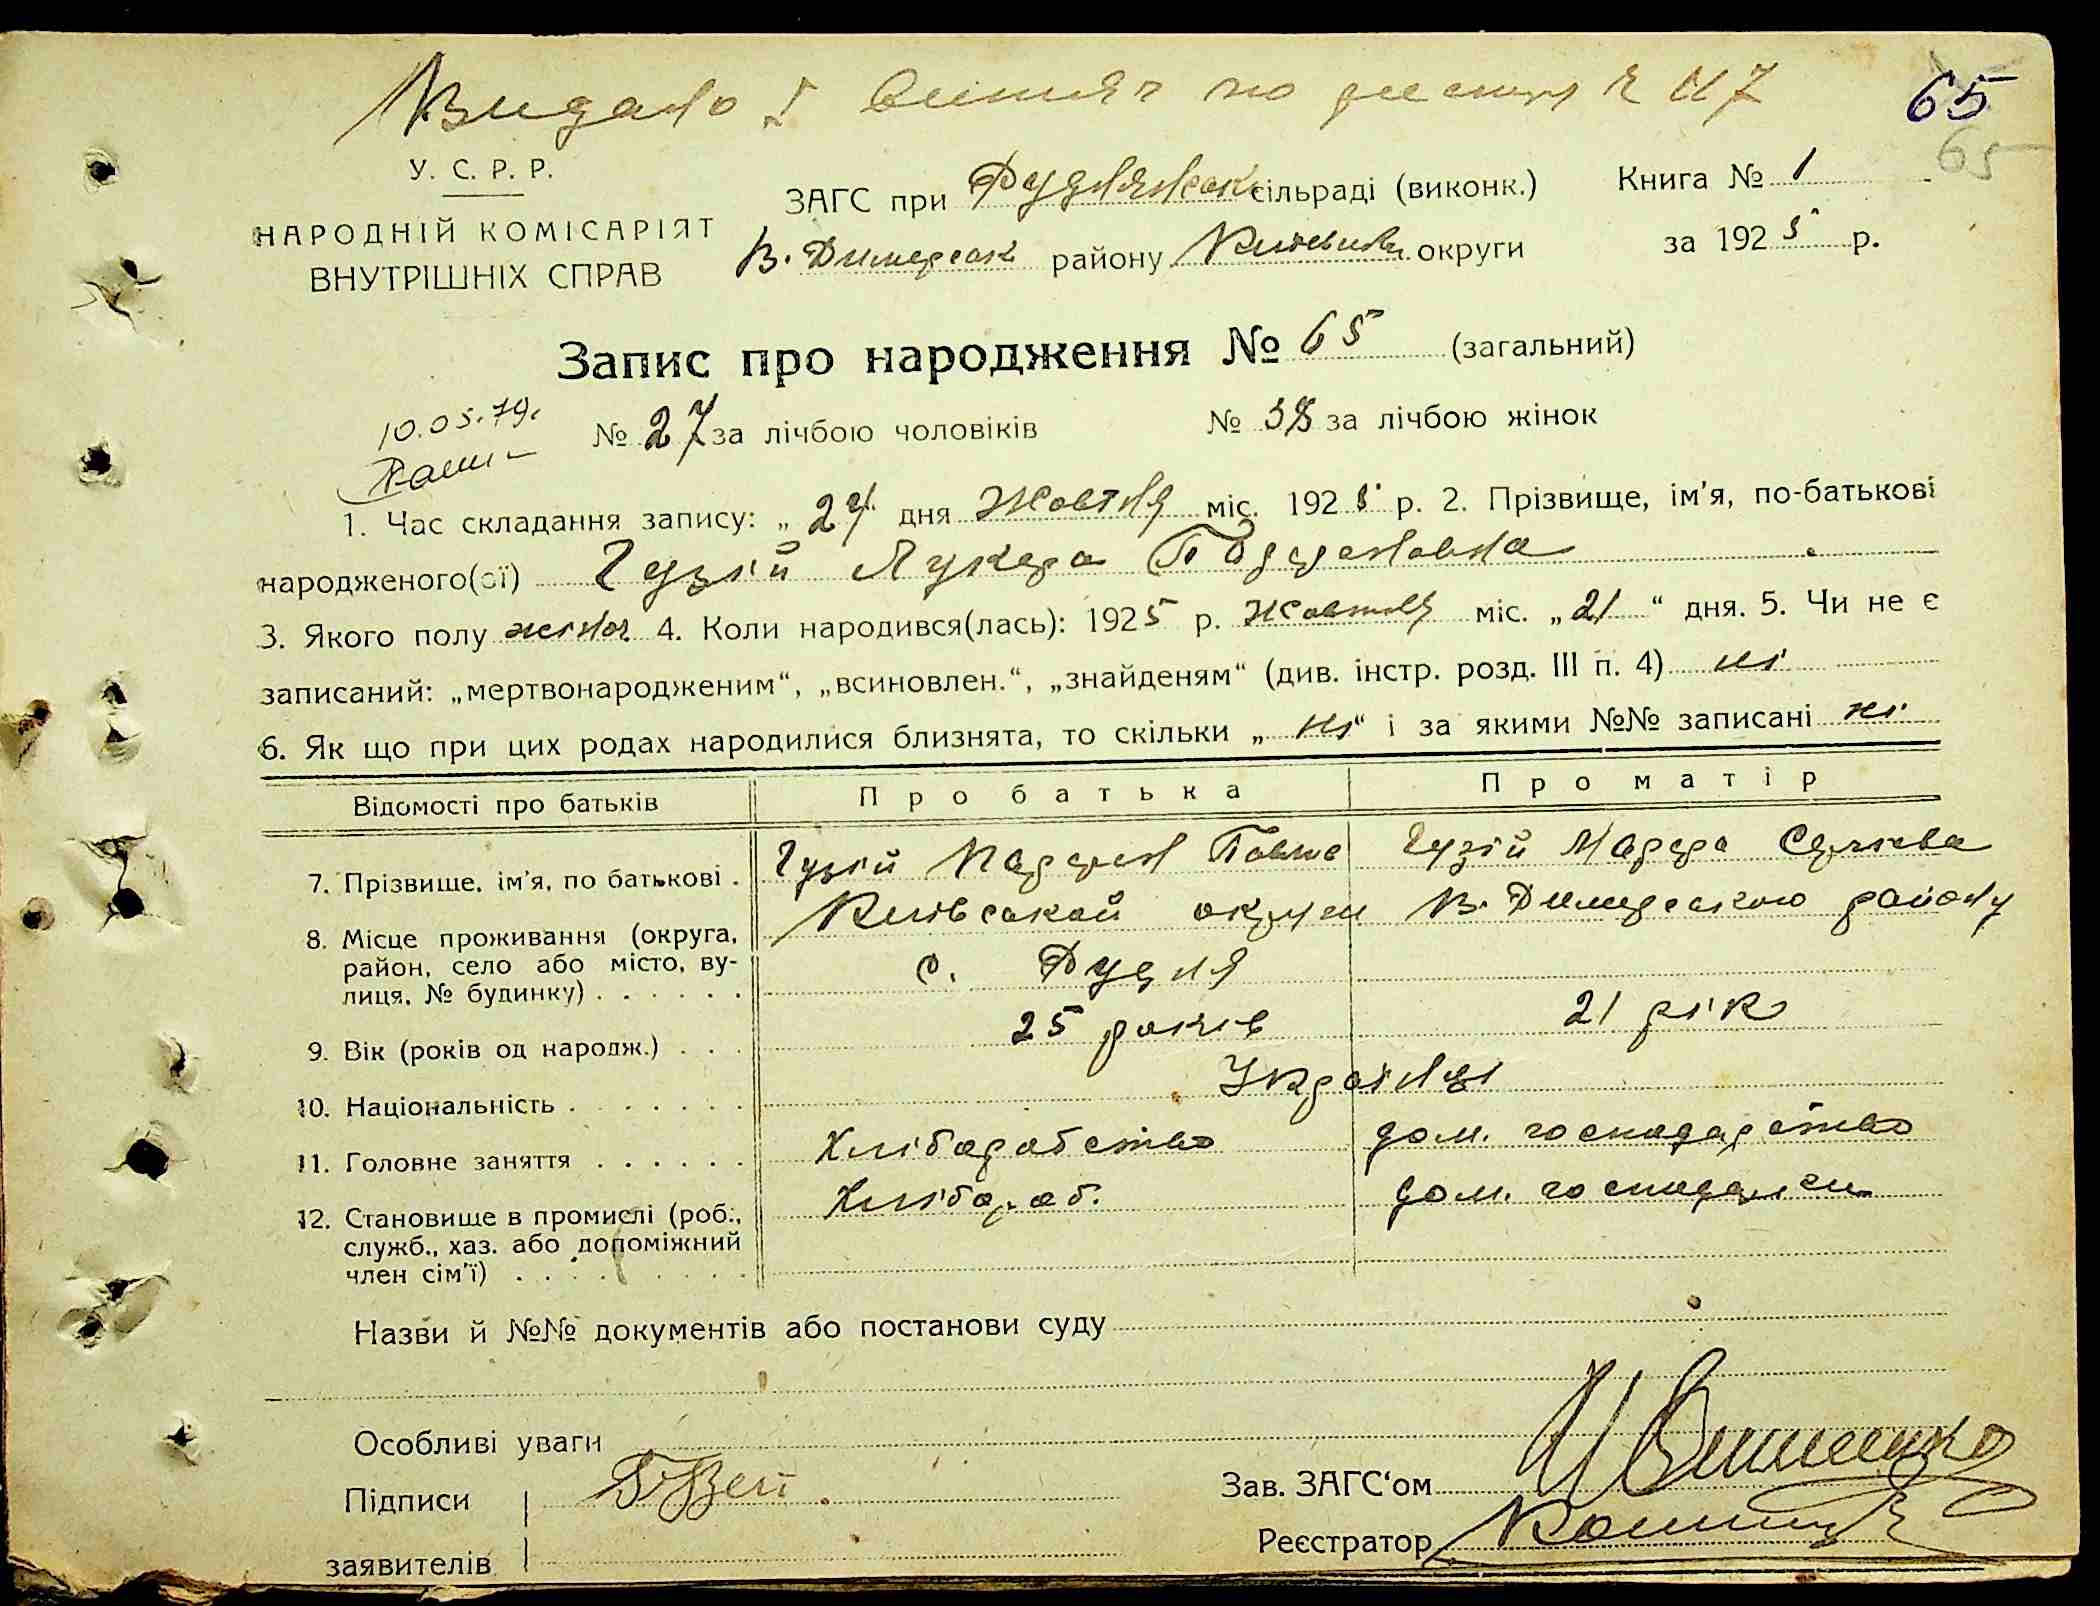 Видано
65
65
У. С. Р. Р.
НАРОДНІЙ КОМІСАРІЯТ
ВНУТРІШНІХ СПРАВ
ЗАГС при Руднянськ сільраді (виконк.)
В. Димерськ району Київськ округи
Книга № 1
за 1925 р.
Запис про народження № 65 (загальний)
10.05.79.
№ 27 за лічбою чоловіків № 38 за лічбою жінок
1. Час складання запису: „ 27 дня Жовтня міс. 1925 р. 2. Прізвище, ім'я, по-батькові
народженого(ої) Гузій Лукера
3. Якого полу жіноч 4. Коли народився(лась): 1925 р. Жовтня міс. „21“ дня. 5. Чи не є
записаний: „мертвонародженим“, „всиновлен.“, „знайденям“ (див. інстр. розд. III п. 4) ні
6. Як що при цих родах народилися близнята, то скільки „ ні“ і за якими №№ записані ні
Відомості про батьків Про батька Про матір
7. Прізвище, ім'я, по батькові . Гузій Павло Гузій
8. Місце проживання (округа, Київської округи В. Димерського району
район, село або місто, ву- с. Рудня
лиця, № будинку) . . . . . .
9. Вік (років од народж.) . . . 25 років 21 рік
10. Національність . . . . . . . Українці
11. Головне заняття . . . . . . Хліборобство дом. господарство
12. Становище в промислі (роб., Хлібороб. дом.
служб., хаз. або допоміжний
член сім'ї) . . . . . . . . .
Назви й №№ документів або постанови суду
Особливі уваги
Підписи
заявителів
Зав. ЗАГС'ом
Реєстратор